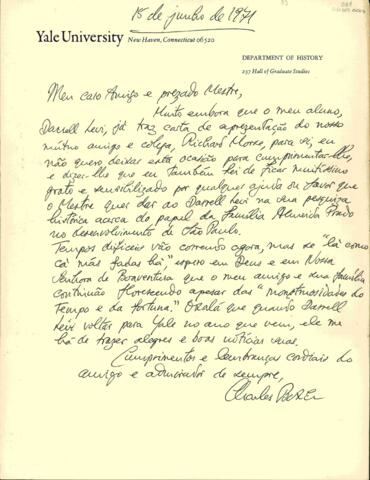 15 de junho de 1971
Yale University New Haven, Connecticut 06520
DEPARTMENT OF HISTORY
237 Hall of Graduate Studies
Meu caro Amigo e prezado Mestre,
Muito embora que o meu aluno,
Darrell Levi, já traz carta de apresentação do nosso
mútuo amigo e colega, Richard Morse, para si, eu
não quero deixar esta ocasião para cumprimentar-lhe,
e dizer-lhe que eu também hei de ficar muitíssimo
grato e sensibilizado por qualquer ajuda ou favor que
o Mestre quer dar ao Darrell Levi na sua pesquisa
histórica acerca do papel da família Almeida Prado
no desenvolvimento de São Paulo.
Tempos difíceis vão correndo agora, mas se "lá como
cá más fadas há", espero em Deus e em Nossa
Senhora de Boaventura que o meu amigo e sua família
continuão florescendo apesar das "monstruosidades do
Tempo e da fortuna." Oxalá que quando Darrell
Levi voltar para Yale no ano que vem, ele me
há de trazer alegres e boas notícias suas.
Cumprimentos e lembranças cordiais do
amigo e admirador de sempre,
Charles Boxer